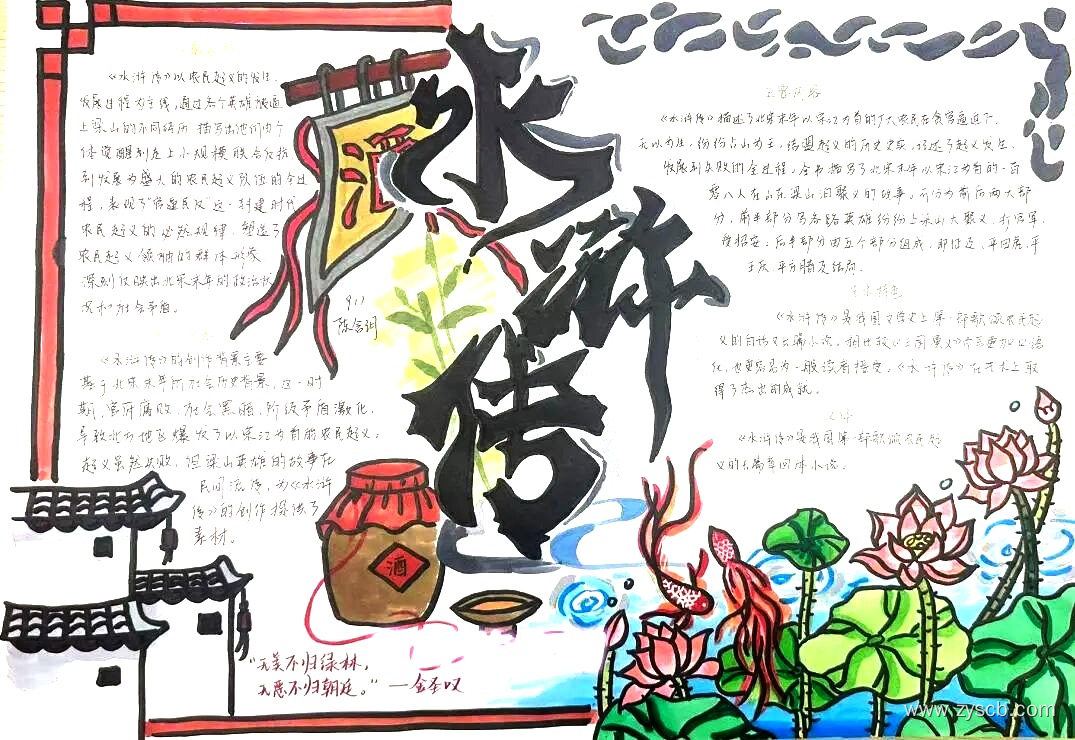 《水浒传》以农民起义的发生、
发展过程为主线，通过各个英雄被逼
上梁山的不同经历，描写出他们由个
体觉醒到走上小规模联合反抗，
到发展为盛大的农民起义队伍的全过
程，表现了“官逼民反”这一封建时代
农民起义的必然规律，塑造了
农民起义领袖的群体形象，
深刻反映出北宋末年的政治状
况和社会矛盾。
《水浒传》的创作背景主要
基于北宋末年的社会历史背景，这一时
期，官府腐败，社会黑暗，阶级矛盾激化，
导致北方地区爆发了以宋江为首的农民起义，
起义虽然失败，但梁山英雄的故事在
民间流传，为《水浒
传》的创作提供了
素材。
酒
水浒传
911
主要内容
《水浒传》描述了北宋末年以宋江为首的广大农民在贪官逼迫下，
无以为生，纷纷占山为王，结盟起义的历史史实，记述了起义发生、
发展到失败的全过程，全书描写了北宋末年以宋江为首的一百
零八人在山东梁山泊聚义的故事，可分为前后两大部
分，前半部分写各路英雄纷纷上梁山大聚义，打官军，
受招安，后半部分由五个部分组成，即征辽、平田虎、平
王庆、平方腊及结局。
艺术特色
《水浒传》是我国文学史上第一部歌颂农民起
义的白话文长篇小说，相比较《三国演义》它更加口语
化，也更容易为一般读者接受，《水浒传》在艺术上取
得了杰出的成就。
《水浒传》是我国第一部歌颂农民起
义的长篇章回体小说。
酒
“无美不归绿林，
无恶不归朝廷。”—金圣叹
www.zyscb.com